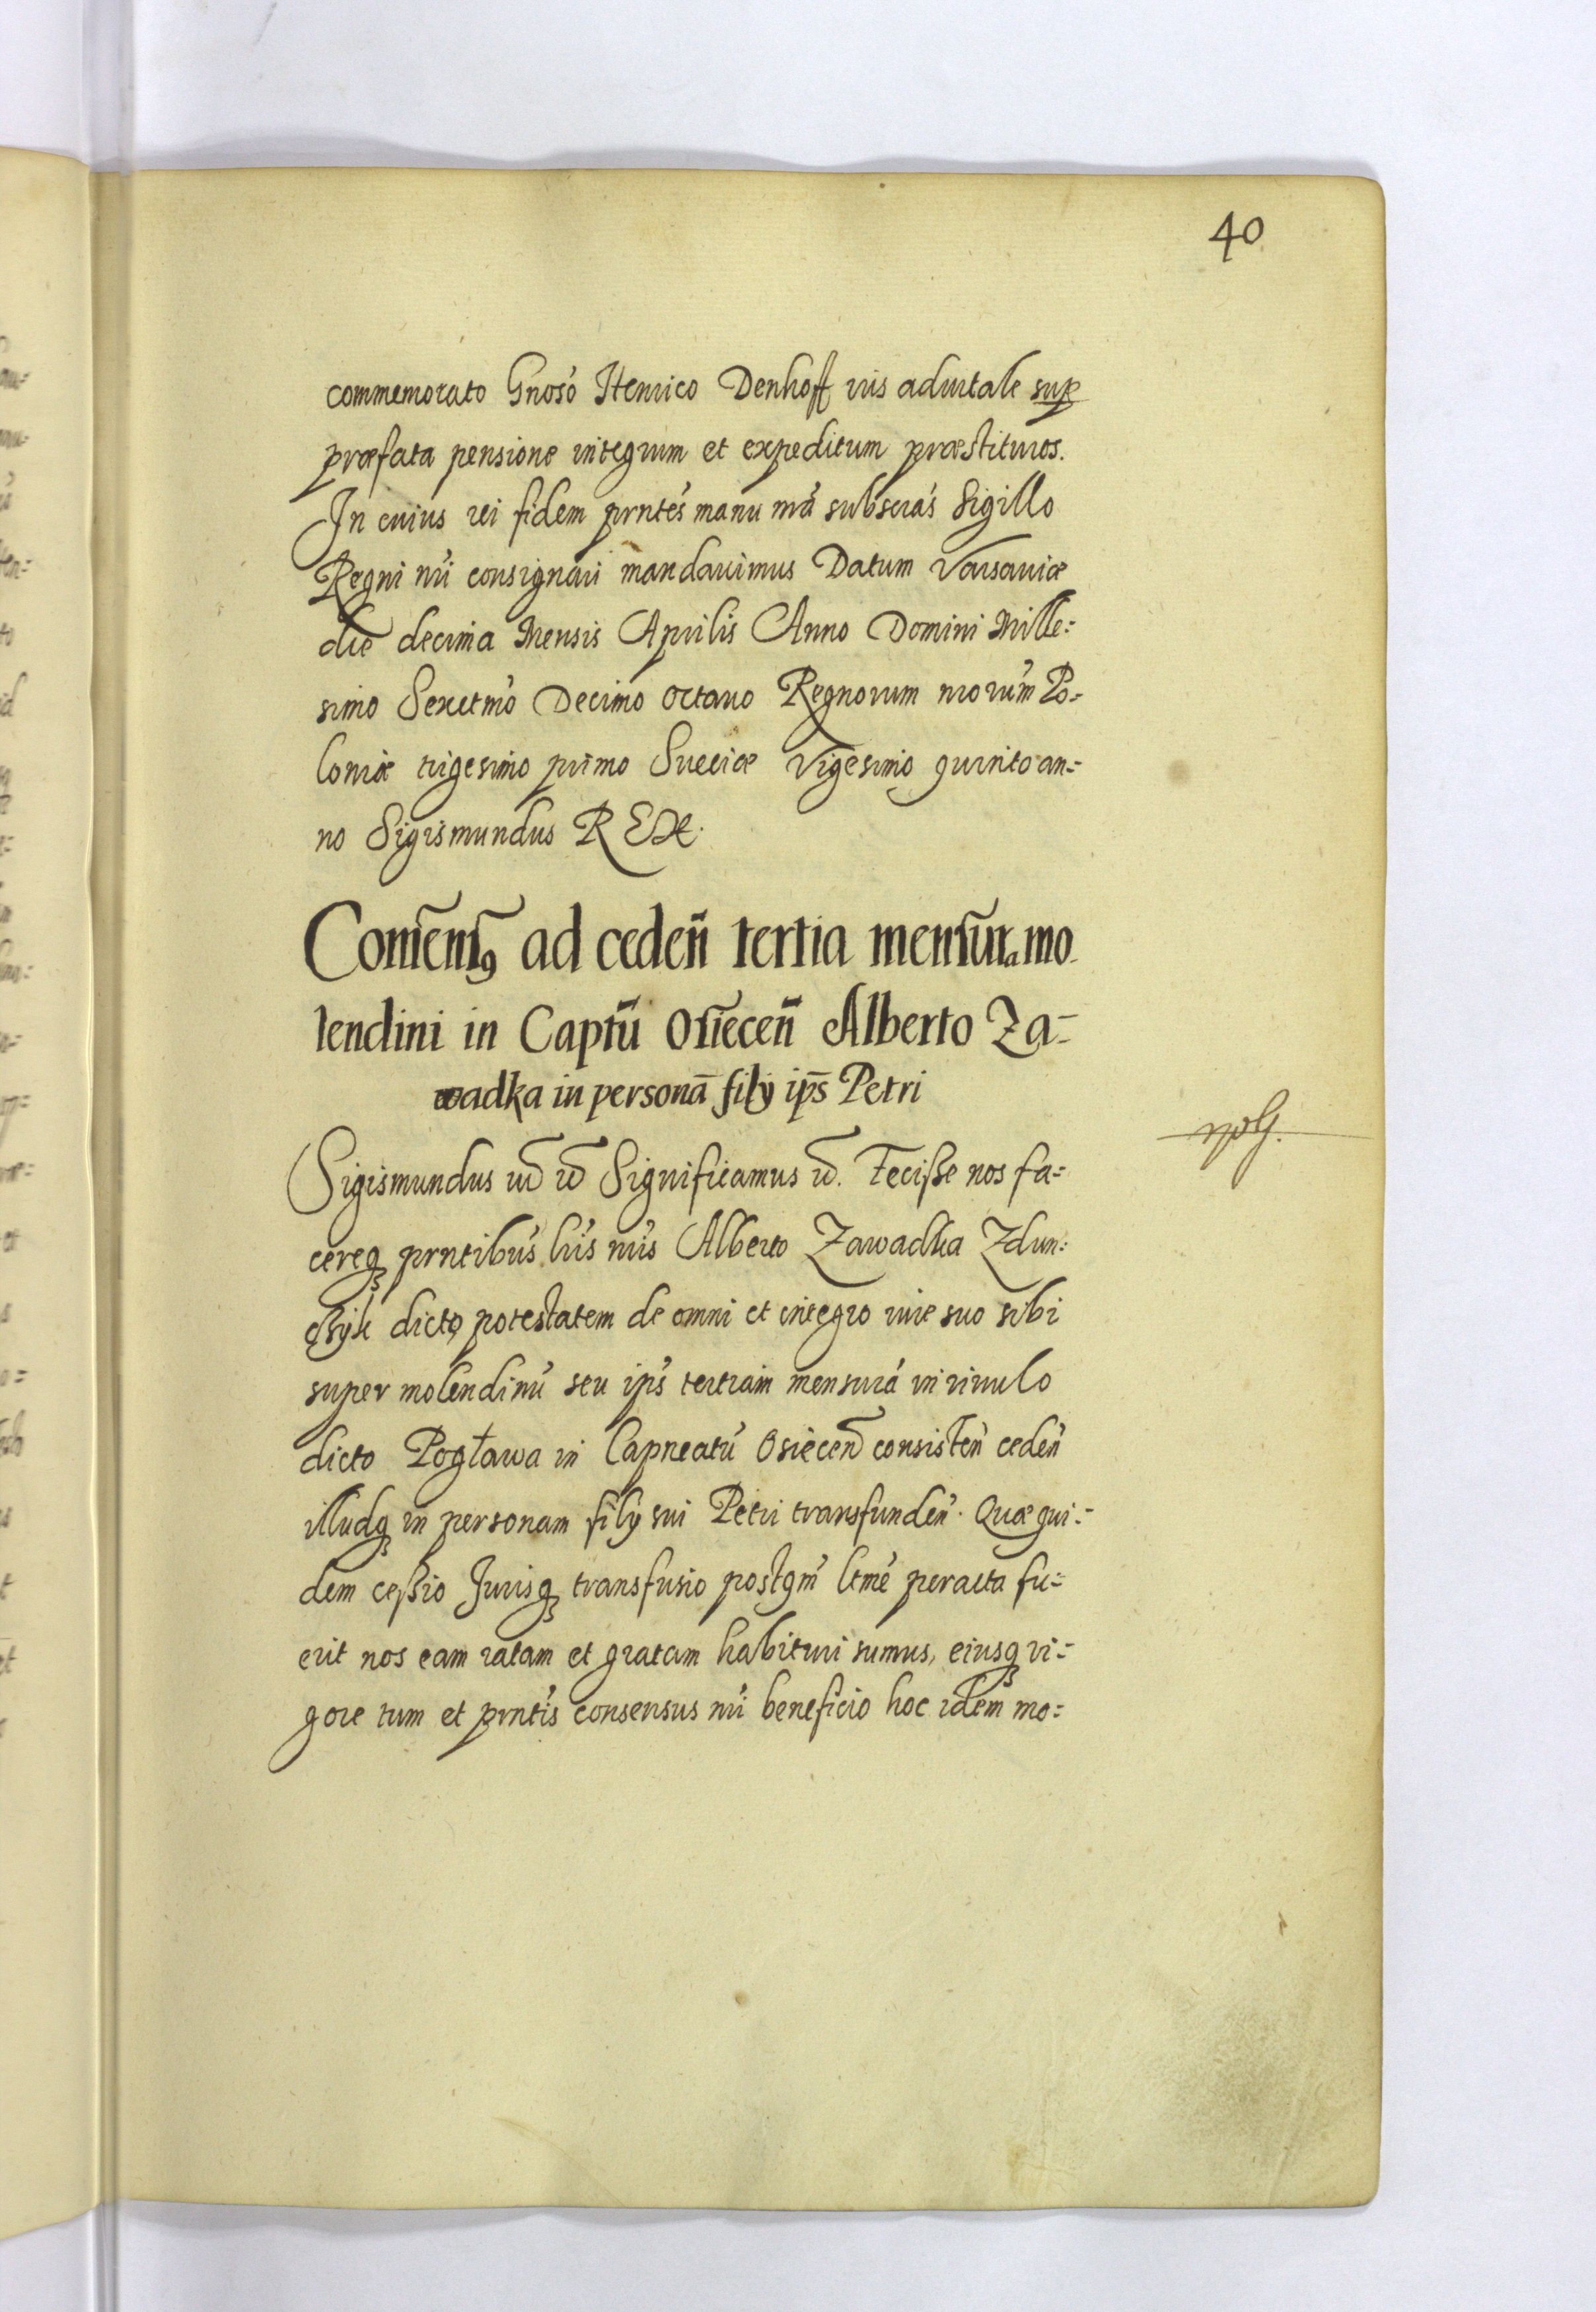 40
commemorato Gnoso Henrico Denhoff ius aduitale sup
præfata pensione integrum et expeditum præstituros.
In cuius rei fidem prntes manu nra subscras Sigillo
Regni nri consignari mandauimus Datum Varsauiæ
die decima Mensis Aprilis Anno Domini Mille=
simo Sexctmo Decimo octauo Regnorum nrorum Po=
loniæ trigesimo primo Sueciæ Vigesimo quinto an=
no Sigismundus REX.
Consens9 ad ceden̄ tertia mensura mo
lendini in Captū Osiecen̄ Alberto Za-
wadka in personā filÿ ips̄ Petri
Sigismundus etc etc Significamus etc. Fecisse nos fa=
cereq prntibus lris nris Alberto Zawadka Zdun=
czyk dicto potestatem de omni et integro iure suo sibi
super molendinu seu ips tertiam mensura in riuulo
dicto Pogława in Capneatu Osiecen consisten ceden
illudq in personam filÿ sui Petri transfunden. Quæ qui=
dem cessio Jurisq transfusio postqm ltme peracta fu=
erit nos eam ratam et gratam habituri sumus, eiusq vi=
gore tum et prntis consensus nri beneficio hoc idem mo=